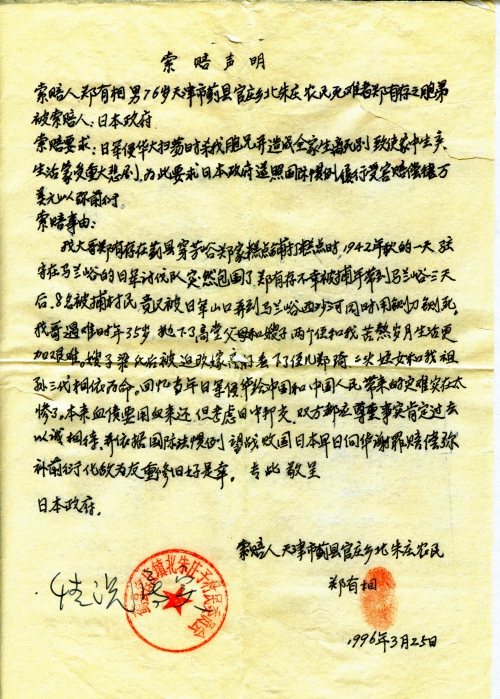 索赔声明
索赔人郑有相 男76岁天津市蓟县官庄乡北朱庄农民死难者郑有存之胞弟
被索赔人:日本政府
索赔要求:日军侵华大扫荡时杀我胞兄并造成全家生离死别致使家中生产、
生活蒙受重大悲剧,为此要求日本政府遵照国际惯例履行受害赔偿 万
美元以弥前衍。
索赔事由:
我大哥郑有存在蓟县穿芳峪郑家糕点铺打糕点时,1942年秋的一天,驻
守在马兰峪的日军讨伐队突然包围了郑有存不幸被捕年带到马兰峪三天
后,8名被捕村民 又被日军山口弄到马兰峪西沙河同时用铡刀铡死。
我哥遇难时年35岁抛下了高堂父母和嫂子两个侄和我,苦熬岁月生活更
加艰难。嫂子梁氏后被迫改嫁 丢下了侄儿郑琦 侄女和我祖
孙三代相依为命。回忆当年日军侵华给中国和中国人民带来的灾难实在太
惨了。本来血债要用血来还,但考虑日中邦交,双方都应尊重事实肯定过去
以诚相待,并依据国际法惯例 望战败国日本早日向华谢罪赔偿弥
补前衍化敌为友重修旧好是幸。 专此 敬呈
日本政府。
索赔人天津市蓟县官庄乡北朱庄农民
郑有相
1996年3月25日
情况属实
镇北朱庄子村民委员会